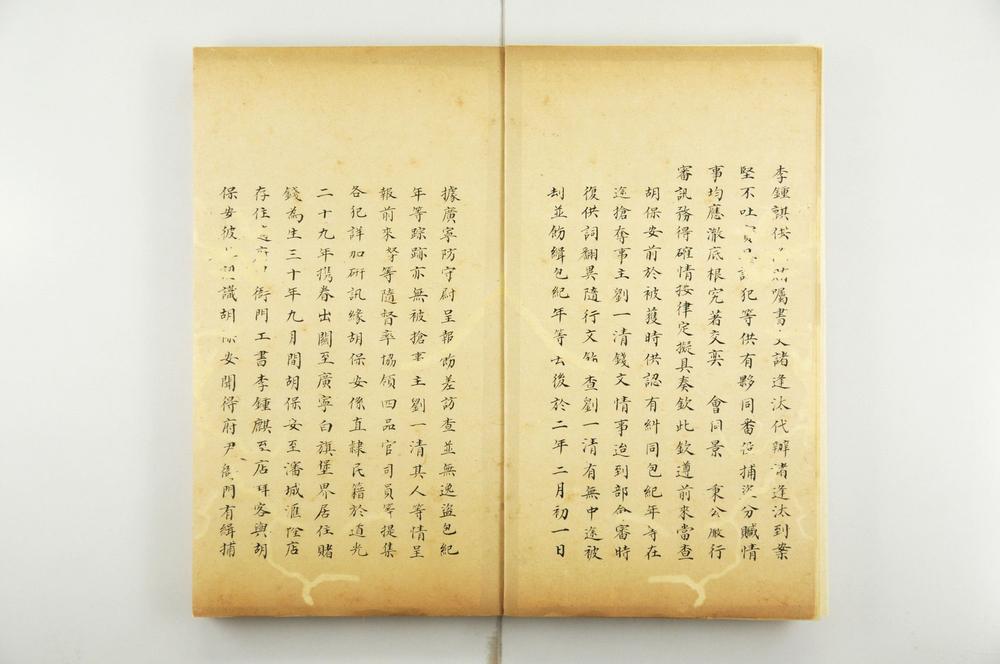 李鍾祺供 囑書 諸逢汰代辦渚逢汰到案
堅不吐 犯等供有夥同番役捕盜分贓情
事均應澈底根究著交奕 會同景 秉公嚴行
審訊務得確情按律定擬具奏欽此欽遵前來當查
胡保安前於被獲時供認有糾同包紀年等在
途搶奪事主劉一清錢文情事迨到部会審時
復供詞翻異隨行文 查劉一清有無中途被
刦並飭緝包紀年等去後於二年二月初一日
據廣寧防守尉呈報飭差訪查並無逸盜包紀
年等踪跡亦無被搶事主劉一清其人等情呈
報前來 等隨督率協領四品官司員等提集
各犯詳加研訊緣胡保安係直隸民籍於道光
二十九年携眷出關至廣寧白旗堡界居住賭
錢為生三十年九月間胡保安至瀋城滙陞店
存住 府 衙門工書李鍾麒至店拜客與胡
保安彼 認識胡保安聞得府尹衙門有緝捕